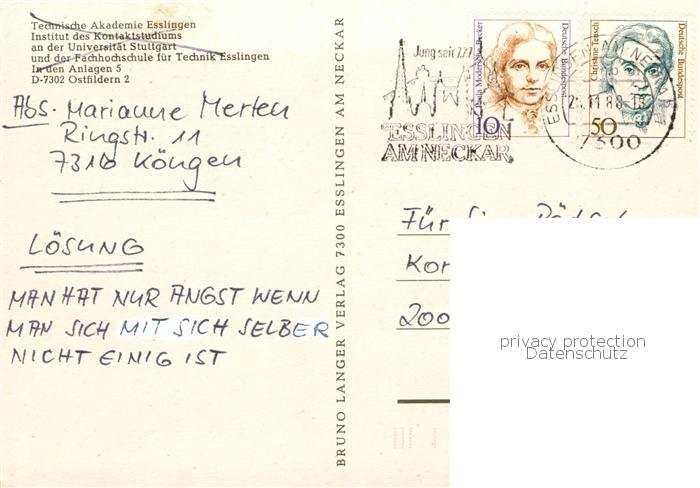 Technische Akademie Esslingen
Institut des Kontaktstudiums
an der Universität Stuttgart
und der Fachhochschule für Technik Esslingen
In den Anlagen 5
D-7302 Ostfildern 2
Abs. Marianne Merten
Ringstr. 11
7316 Köngen
LÖSUNG
MAN HAT NUR ANGST WENN
MAN SICH MIT SICH SELBER
NICHT EINIG IST
BRUNO LANGER VERLAG 7300 ESSLINGEN AM NECKAR
Jung seit 777
ESSLINGEN
AM NECKAR
Paula Modersohn-Becker
Deutsche Bundespost
10
Christine Teusch
Deutsche Bundespost
50
ESSLINGEN AM NECKAR
11.88
7300
Für
200
privacy protection
Datenschutz